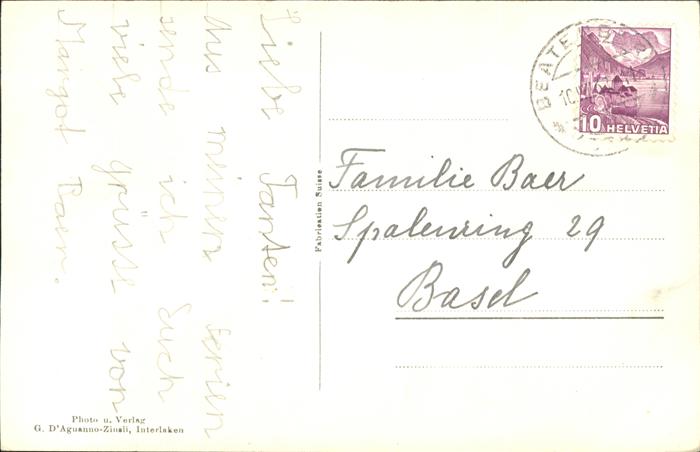 Liebe Tanten!
Aus meinen Ferien
sende ich Euch
viele Grüsse von
Margot Baer.
Familie Baer
Spalenring 29
Basel
Fabrication Suisse
10 HELVETIA
BEATEN
Photo u. Verlag
G. D'Aguanno-Zinali, Interlaken